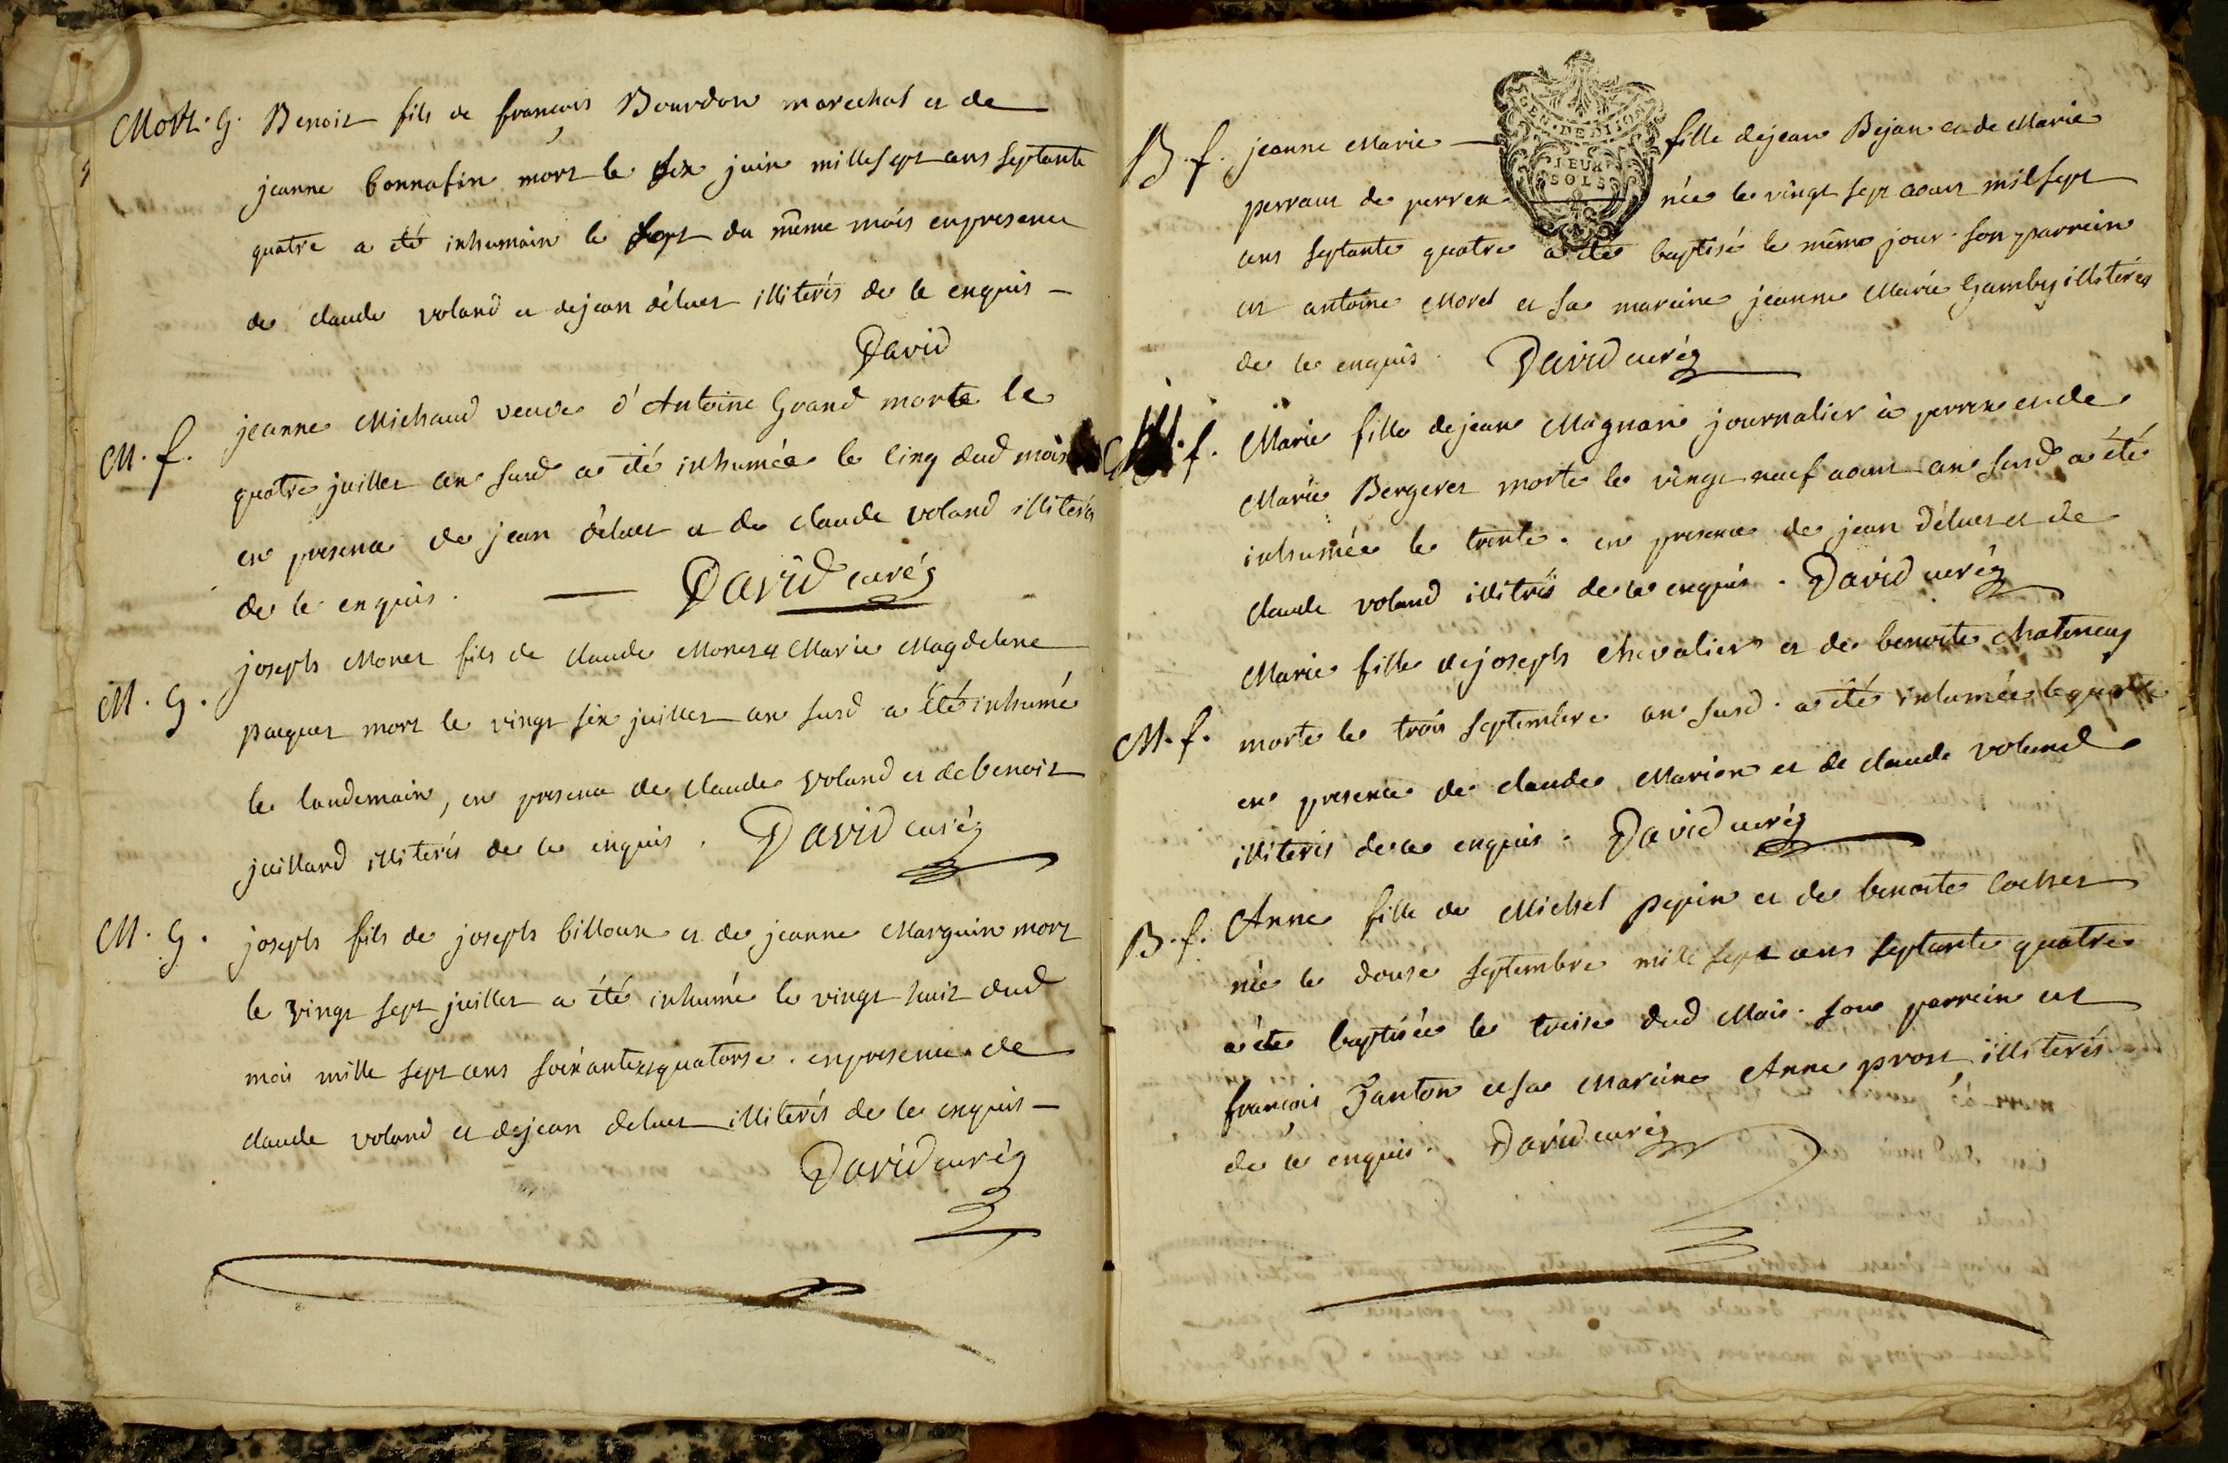 Mort. G. Benoit fils de françois Bourdon marechal et de
jeanne bonnafin mort le six juin mille sept ans septante
quatre a été inhumain le sept du même mois en presence
de claude voland et de jean déluet illiterés de le enquis —
David
M. f. jeanne Michaud veuve d'Antoine Grand morte le
quatre juillet an susd a été inhumée le cinq dud mois
en presence de jean déluet et de claude voland illiterés
de le enquis. — David curé
M. G. joseph Monet fils de claude Monet & Marie Magdelene
pacquet mort le vingt six juillet an susd a été inhumé
le landemain, en presence de claude voland et de benoit
juillard illiterés de le enquis. David curé
M. G. joseph fils de joseph billoux et de jeanne Marguin mort
le vingt sept juillet a été inhumé le vingt huit dud
mois mille sept ans soixante et quatorse. en presence de
claude voland et de jean deluet illiterés de le enquis —
David curé
GEN. DE DIJON
DEUX
SOLS
B. f. jeanne Marie — fille de jean Bejan et de Marie
perraut de perrex — née le vingt sept aout mil sept
ans septante quatre a été baptisé le même jour. son parrein
est antoine Morel et sa mareine jeanne Marie Gamby illiterés
de le enquis. David curé
M. f. Marie fille de jean Magnan journalier à perrex et de
Marie Bergeret morte le vingt neuf aout an susd a été
inhumée le trente. en presence de jean déluet et de
claude voland illitrés de le enquis. David curé
Marie fille de joseph chevalier et de benoite chateney
M. f. morte le trois septembre an susd. a été inhumée le quatre
en presence de claude Marion et de claude voland
illiterés de le enquis. David curé
B. f. Anne fille de Michel pepin et de benoite cochet
née le douse septembre mille sept ans septante quatre
a été baptisée le treise dud Mois. son parrein est
françois Janton et sa Mareine Anne prost illiterés
de le enquis. David curé